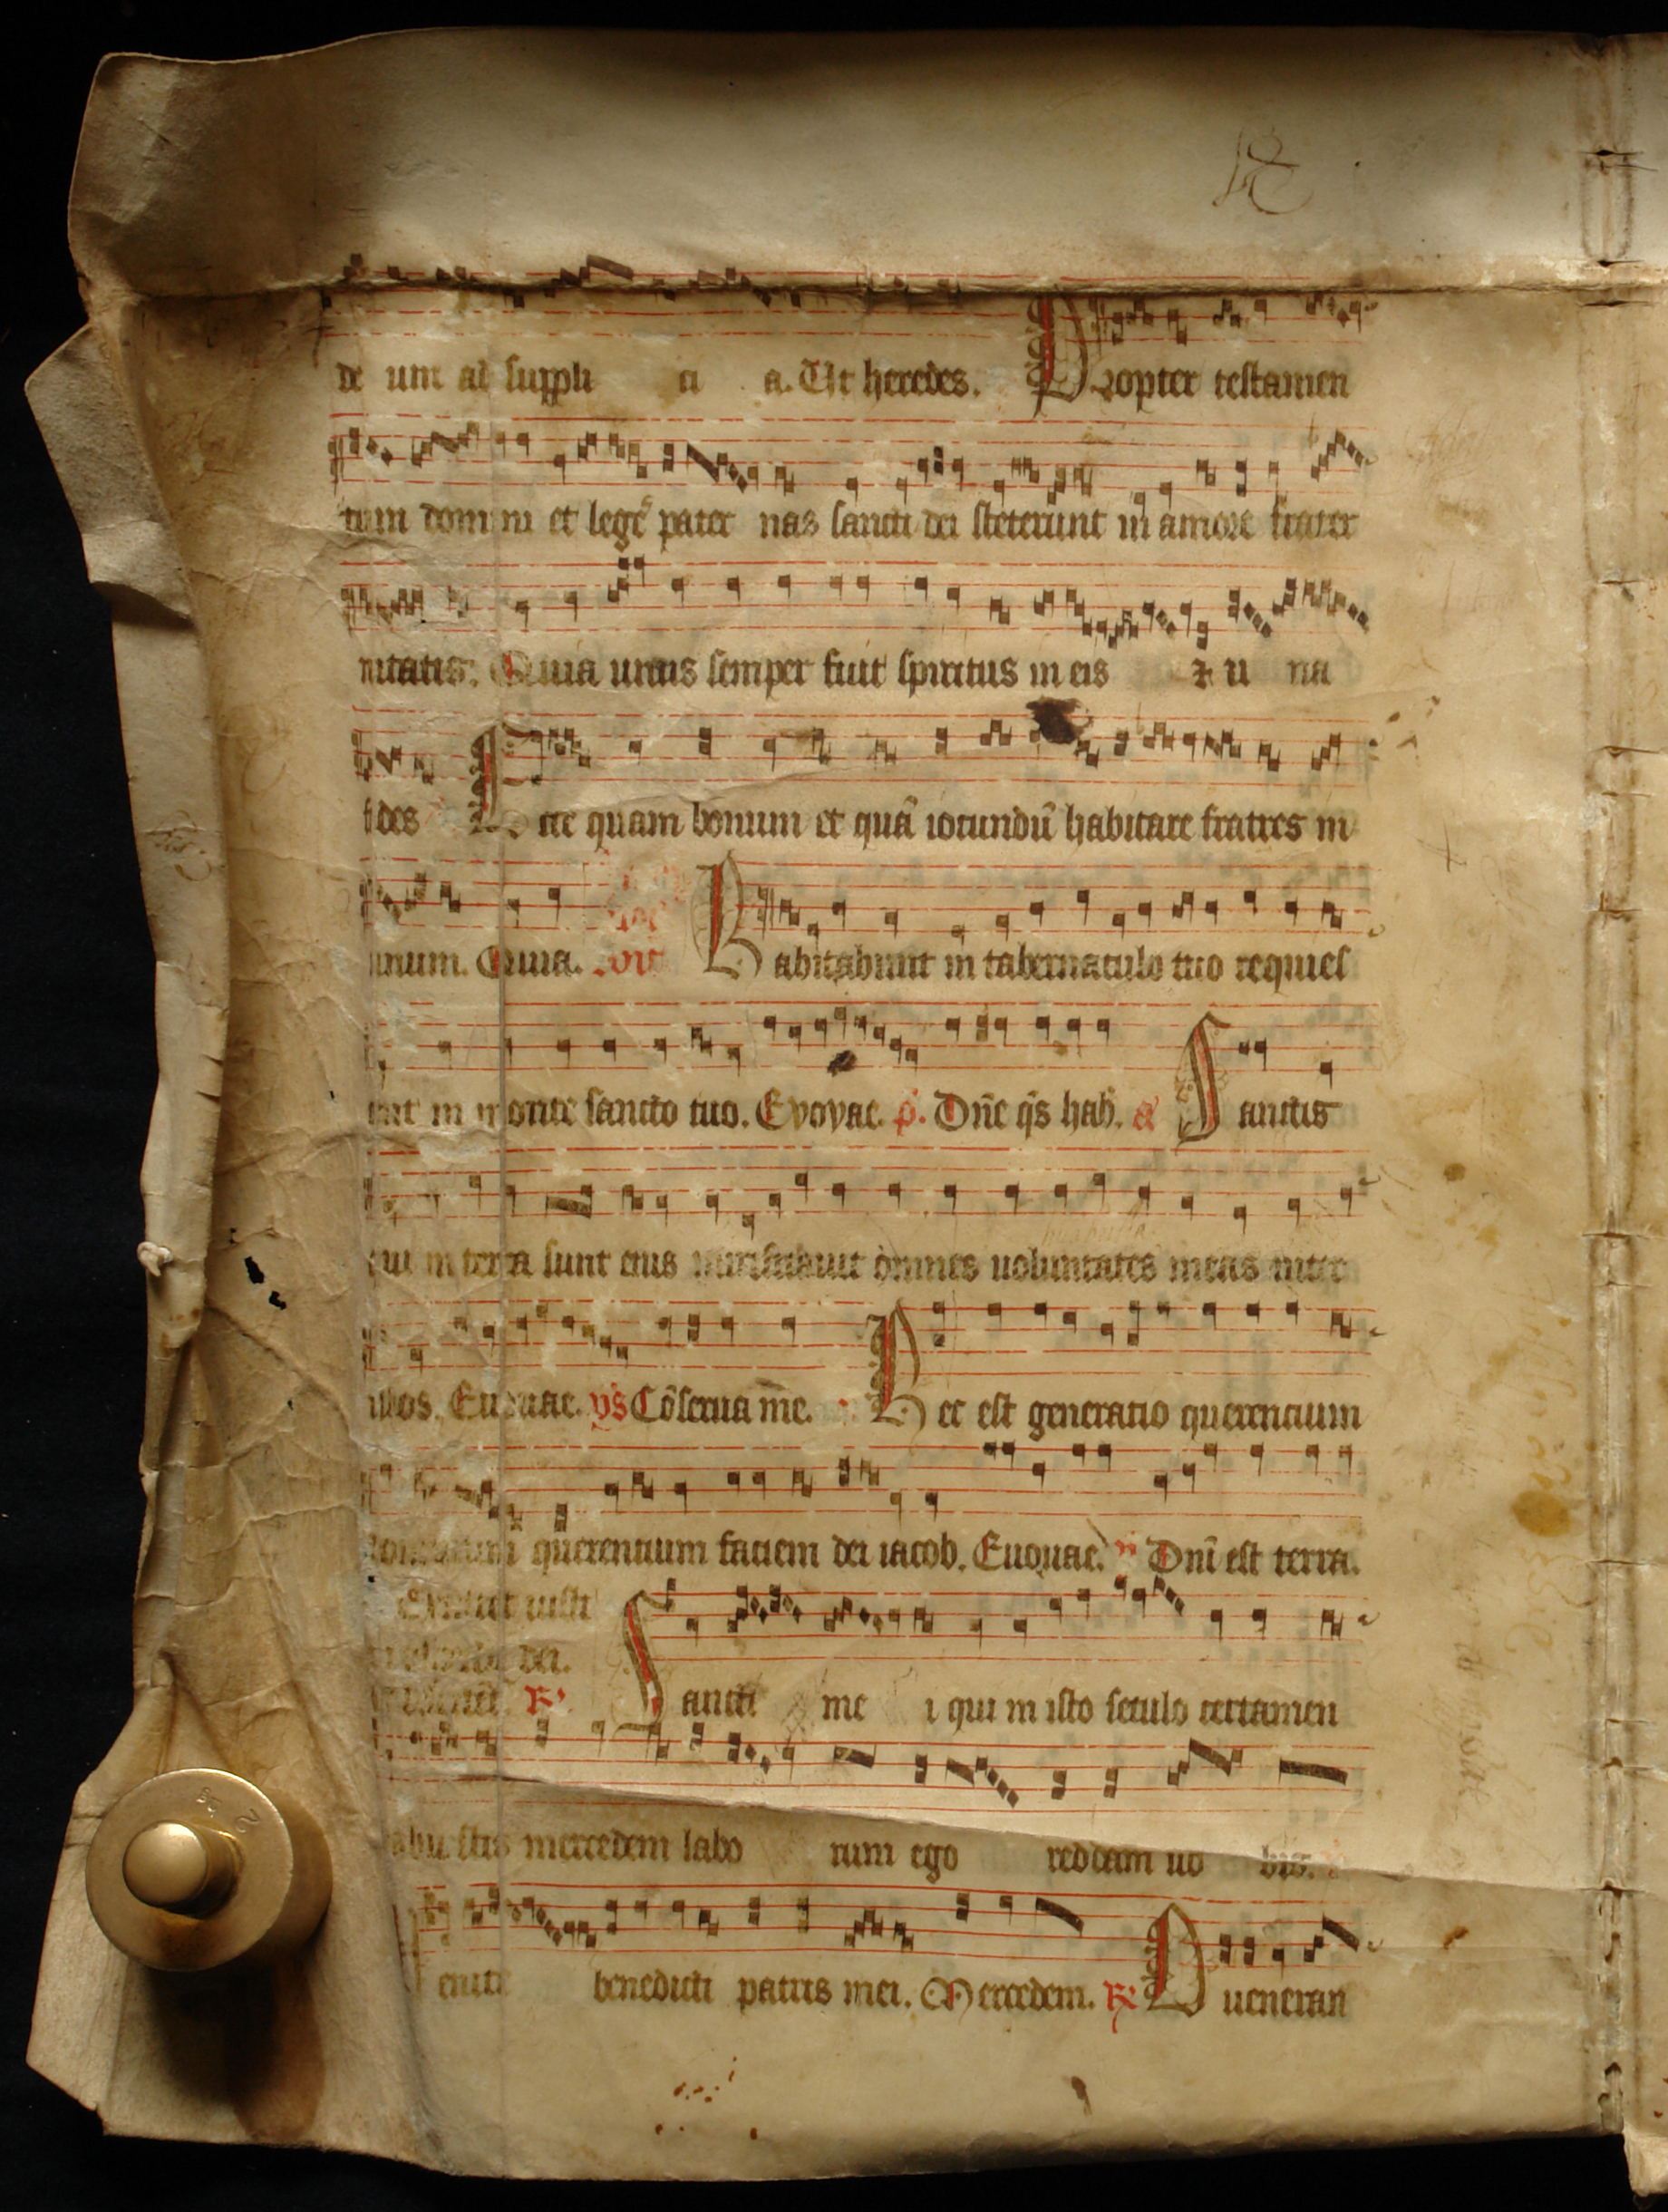 de um ad suppli ci a. Ut heredes. Propter testamen
tum domini et legē pater nas sancti dei steterunt in amore frater
nitatis. Quia unus semper fuit spiritus in eis ⁊ u na
fides Ecce quam bonum et quā iocundū habitare fratres in
unum. Quia. Habitabunt in tabernaculo tuo requies
cent in monte sancto tuo. Evovae. p̄. Dn̄e q̄s hab̄. a Sanctis
qui in terra sunt eius mirificavit omnes uoluntates meas inter
illos. Euouae. ps Cōserua me. Hec est generatio querencium
dominum querentium faciem dei iacob. Euouae. Dn̄i est terra.
Exultent iusti
dei.
℟ Sancti me i qui in isto seculo certamen
habuistis mercedem labo rum ego reddam uo bis.
Uenite benedicti patris mei. Mercedem. ℟ Dueneran